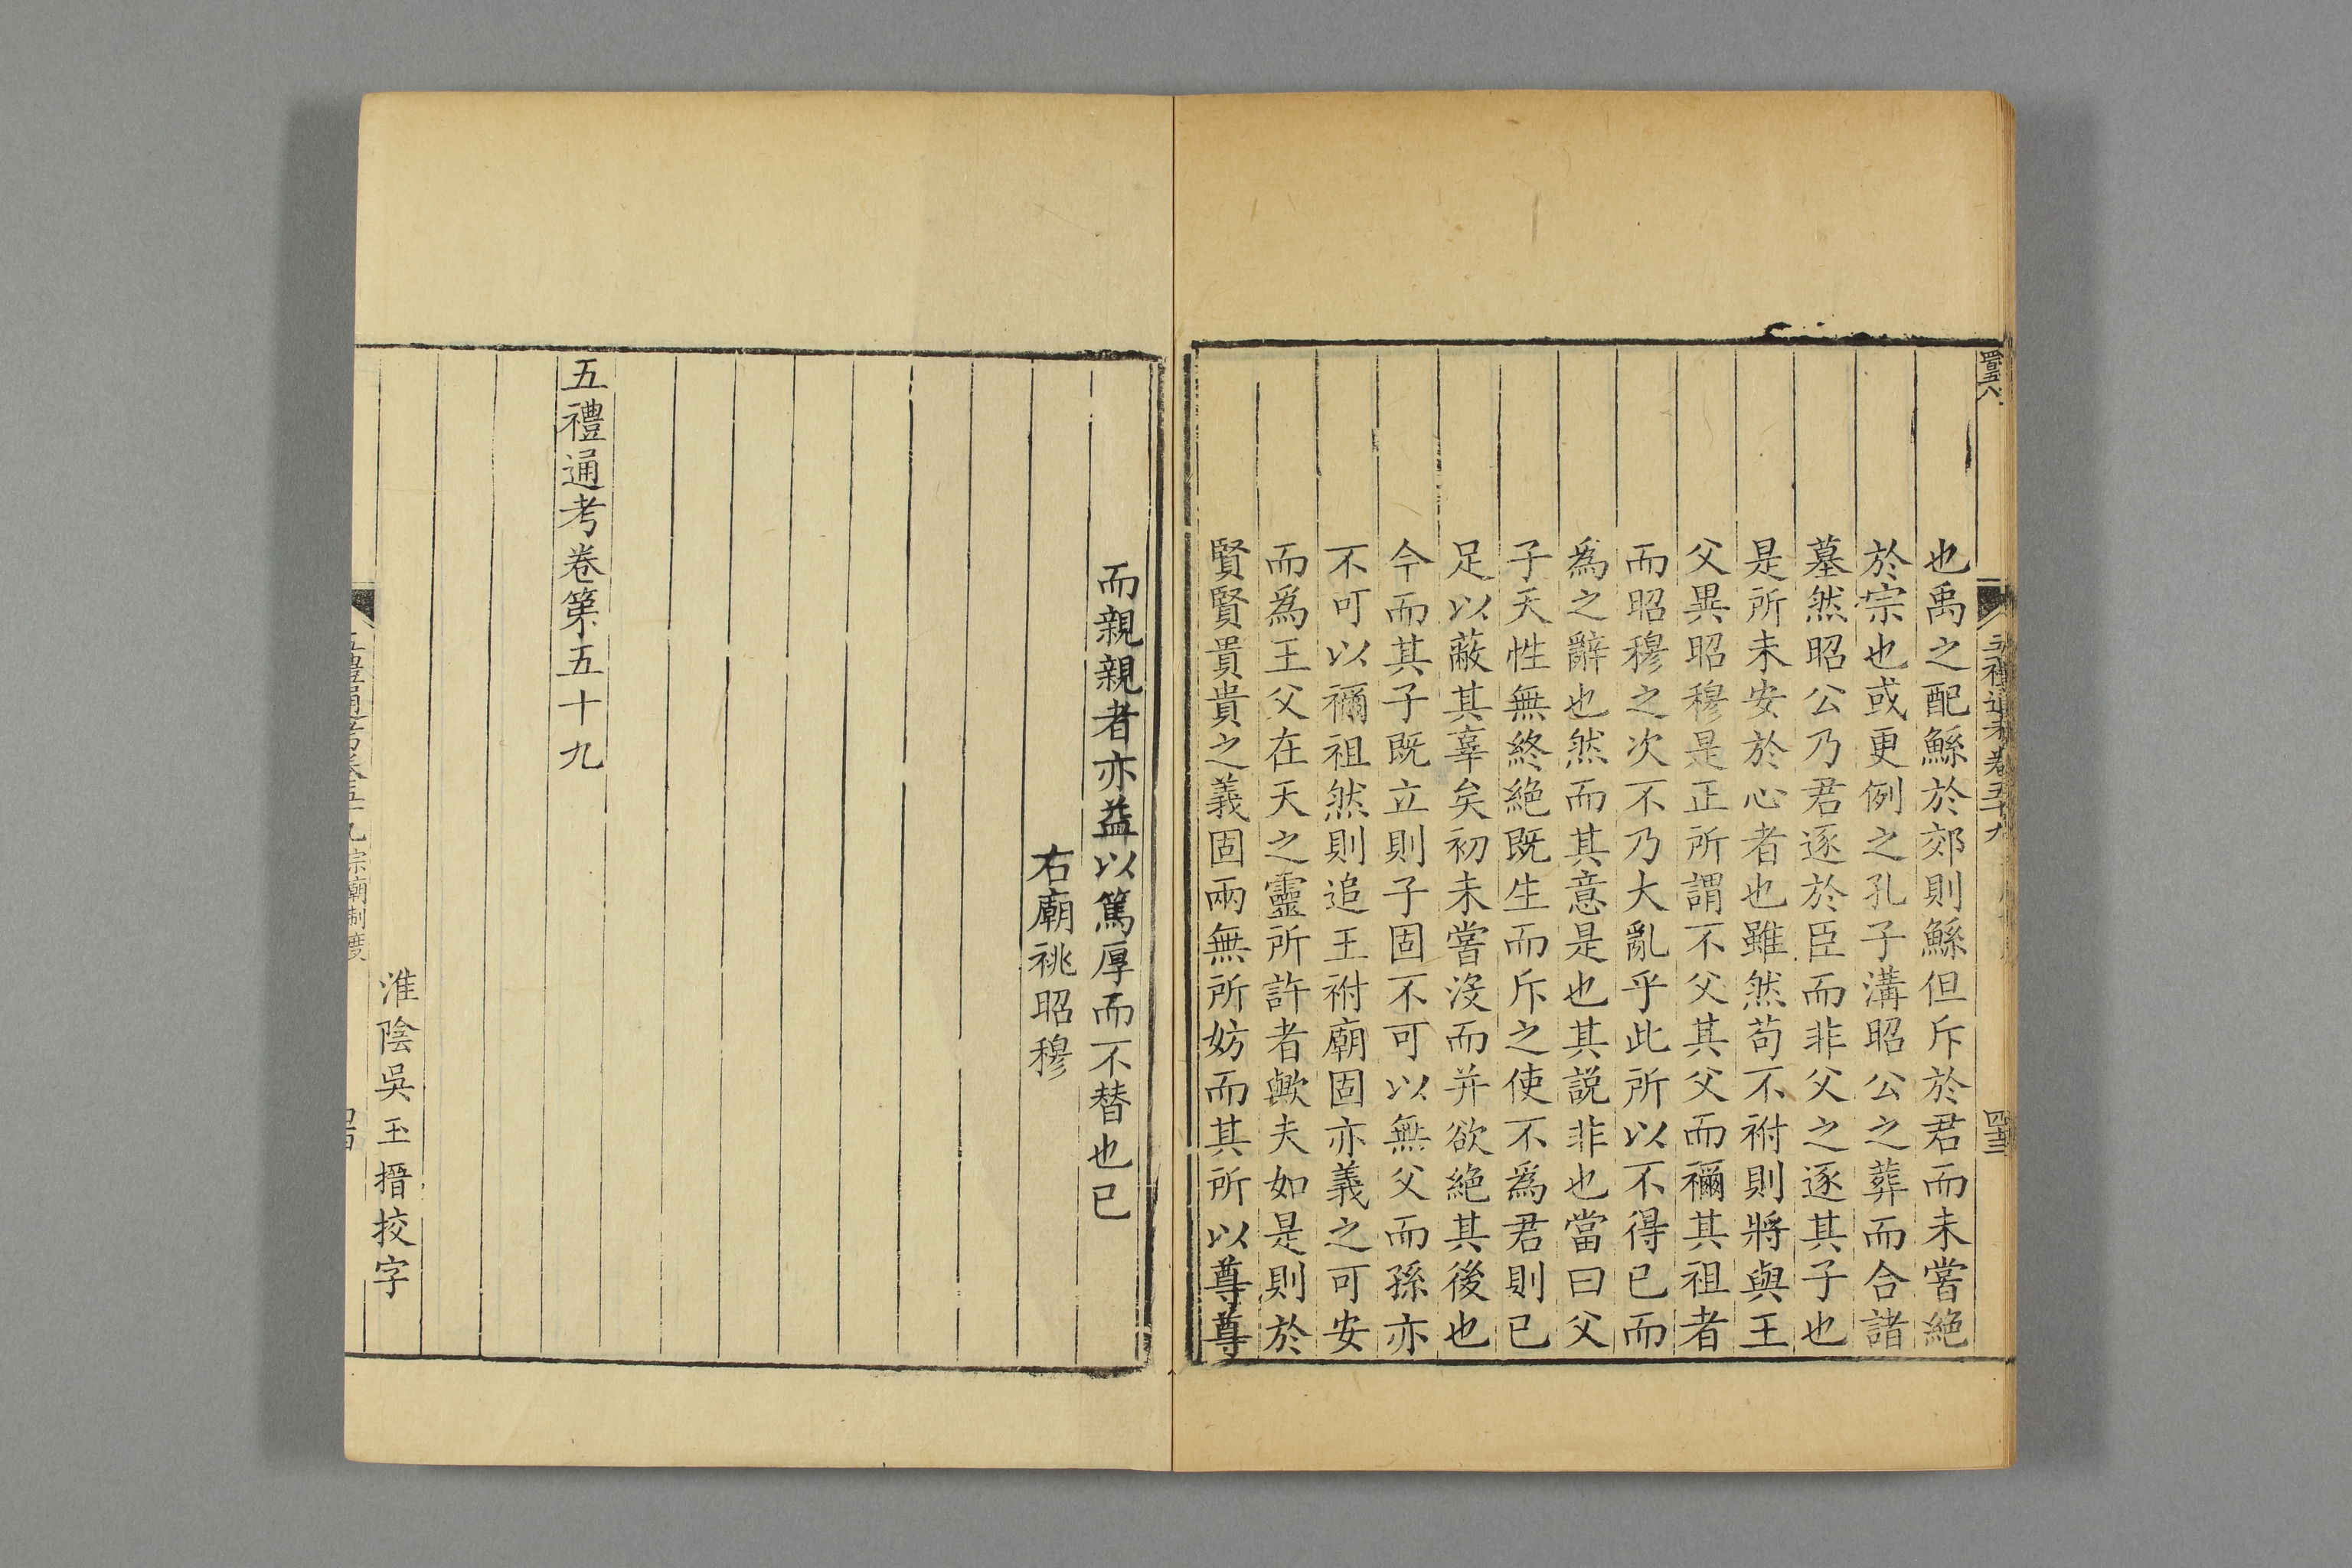 也禹之配鯀於郊則鯀但斥於君而未嘗絶
於宗也或更例之孔子溝昭公之葬而合諸
墓然昭公乃君逐於臣而非父之逐其子也
是所未安於心者也雖然苟不祔則將與王
父異昭穆是正所謂不父其父而禰其祖者
而昭穆之次不乃大亂乎此所以不得已而
為之辭也然而其意是也其説非也當曰父
子天性無終絶既生而斥之使不為君則已
足以蔽其辜矣初未嘗沒而并欲絶其後也
今而其子既立則子固不可以無父而孫亦
不可以禰祖然則追王祔廟固亦義之可安
而為王父在天之靈所許者歟夫如是則於
賢賢貴貴之義固兩無所妨而其所以尊尊
而親親者亦益以篤厚而不替也已
右廟祧昭穆
五禮通考卷第五十九
淮陰吳玉搢挍字
五禮通考卷五十九 宗廟制度